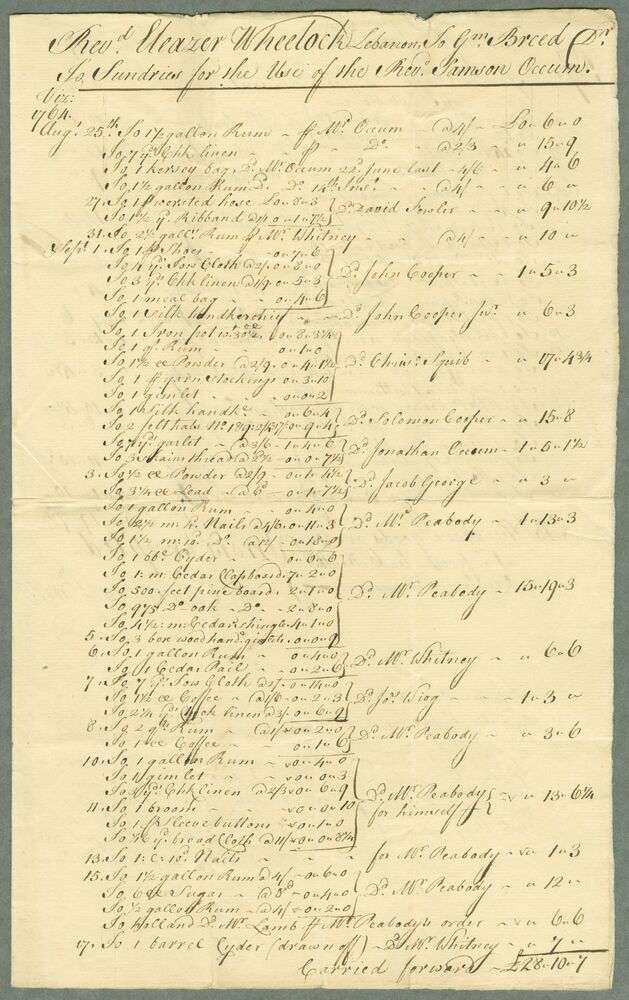 Revd Eleazer Wheelock Lebanon, To Gm Breed Dr
To Sundries for the Use of the Revd Samson Occum.
Viz:
1764.
Augt 25th To 1½ gallon Rum ~ ⅌ Mr Occum ~ @4/ ~ £0 ~ 6 ~ 0
To 7 yds Chk linen ~ ⅌ ~ Do ~ @2/3 ~ " 15 ~ 9
To 1 kersey bag, Do Mr Occum 22d June last ~ 4/6 ~ " 4 ~ 6
To 1½ gallon Rum Do Do 14th Inst. ~ @4/ ~ " 6 "
27. To 1 ⅌ worsted hose £0 ~ 8 ~ 3
To 1½ yd Ribband @1/1 0 ~ 1 ~ 7½ Do David Fowler ~ " 9 ~ 10½
31. To 2½ gallr Rum ⅌ Mr Whitney ~ @4/ ~ " 10 "
Sepr 1. To 1 ⅌ Shoes ~ 0 ~ 7 ~ 6
To 4 yd Tow Cloth @2/ ~ 0 ~ 8 ~ 0
To 3 yd Chk linen @1/9 ~ 0 ~ 5 ~ 3 Do John Cooper ~ 1 ~ 5 ~ 3
To 1 meal bag ~ 0 ~ 4 ~ 6
To 1 silk handkerchief ~ Do John Cooper Junr ~ " 6 ~ 3
To 1 Iron pot wt ~ 0 ~ 8 ~ 3¼
To 1 qt Rum ~ 0 ~ 1 ~ 0
To 1½ ℔ Powder @2/9 ~ 0 ~ 4 ~ 1½ Do Chrisr Squib ~ " 17 ~ 4¾
To 1 ⅌ yarn Stockings 0 ~ 3 ~ 10
To 1 gimlet ~ 0 ~ 0 ~ 2
To 1 Silk handkf ~ 0 ~ 6 ~ 4
To 2 felt hats 0 ~ 9 ~ 4 Do Solomon Cooper ~ " 15 ~ 8
To 7 yd garlet ~ @3/6 ~ 1 ~ 4 ~ 6
To 3 skains thread @2½ ~ 0 ~ 0 ~ 7½ Do Jonathan Occum ~ 1 ~ 5 ~ 1½
3. To ½ ℔ Powder @2/9 ~ 0 ~ 1 ~ 4½
To 3¼ ℔ Lead @6d ~ 0 ~ 1 ~ 7½ Do Jacob George ~ " 3 "
To 1 gallon Rum ~ 0 ~ 4 ~ 0
To 2½ m: Nails @4/6 ~ 0 ~ 11 ~ 3 Do Mr Peabody ~ 1 ~ 13 ~ 3
To 1½ m: 10d Do @12/ ~ 0 ~ 18 ~ 0
To 1 bbl Cyder ~ 0 ~ 6 ~ 6
To 1: m: Cedar Clapboards 7 ~ 2 ~ 0
To 500 feet pine board 2 ~ 1 ~ 0
To 975 Do oak ~ Do ~ 2 ~ 8 ~ 0 Do Mr Peabody ~ 15 ~ 19 ~ 3
To 4½: m: Cedar shingle 4 ~ 1 ~ 0
5. To 3 box wood hand. gimlets 0 ~ 0 ~ 9
6. To 1 gallon Rum ~ 0 ~ 4 ~ 0
To 1 Cedar Pail ~ 0 ~ 2 ~ 6 Do Mr Whitney ~ " 6 ~ 6
7. To 7 yd Tow Cloth @2/ ~ 0 ~ 14 ~ 0
To 1½ ℔ Coffee ~ @1/6 ~ 0 ~ 2 ~ 3 Do Jos. Wiog ~ 1 ~ 3 "
To 2¼ yd Check linen @3/ ~ 0 ~ 6 ~ 9
8. To 2 qts Rum ~ @1/ ~ 0 ~ 2 ~ 0
To 1 ℔ Coffee ~ 0 ~ 1 ~ 6 Do Mr Peabody ~ " 3 ~ 6
10. To 1 gallon Rum ~ 0 ~ 4 ~ 0
To 1 gimlet ~ 0 ~ 0 ~ 3
To 3 yd Chk linen @2/3 ~ 0 ~ 6 ~ 9 Do Mr Peabody
11. To 1 broom ~ 0 ~ 0 ~ 10 for himself ~ " 13 ~ 6¼
To 1 ⅌ Sleeve buttons ~ 0 ~ 1 ~ 0
To 1/16 yd broad Cloth @11/ ~ 0 ~ 0 ~ 8¼
13. To 1: c: 10d Nails ~ for Mr Peabody ~ " 1 ~ 3
15. To 1½ gallon Rum @4/ ~ 0 ~ 6 ~ 0
To 6 ℔ Sugar ~ @8d ~ 0 ~ 4 ~ 0 Do Mr Peabody ~ " 12 "
To ½ gallon Rum ~ @4/ ~ 0 ~ 2 ~ 0
To holland Dd Mr Lamb ⅌ Mr Peabody's order ~ " 6 ~ 6
17. To 1 barrel Cyder (drawn off) ~ Do Mr Whitney ~ " 7 "
Carried forward ~ £28 ~ 10 ~ 7